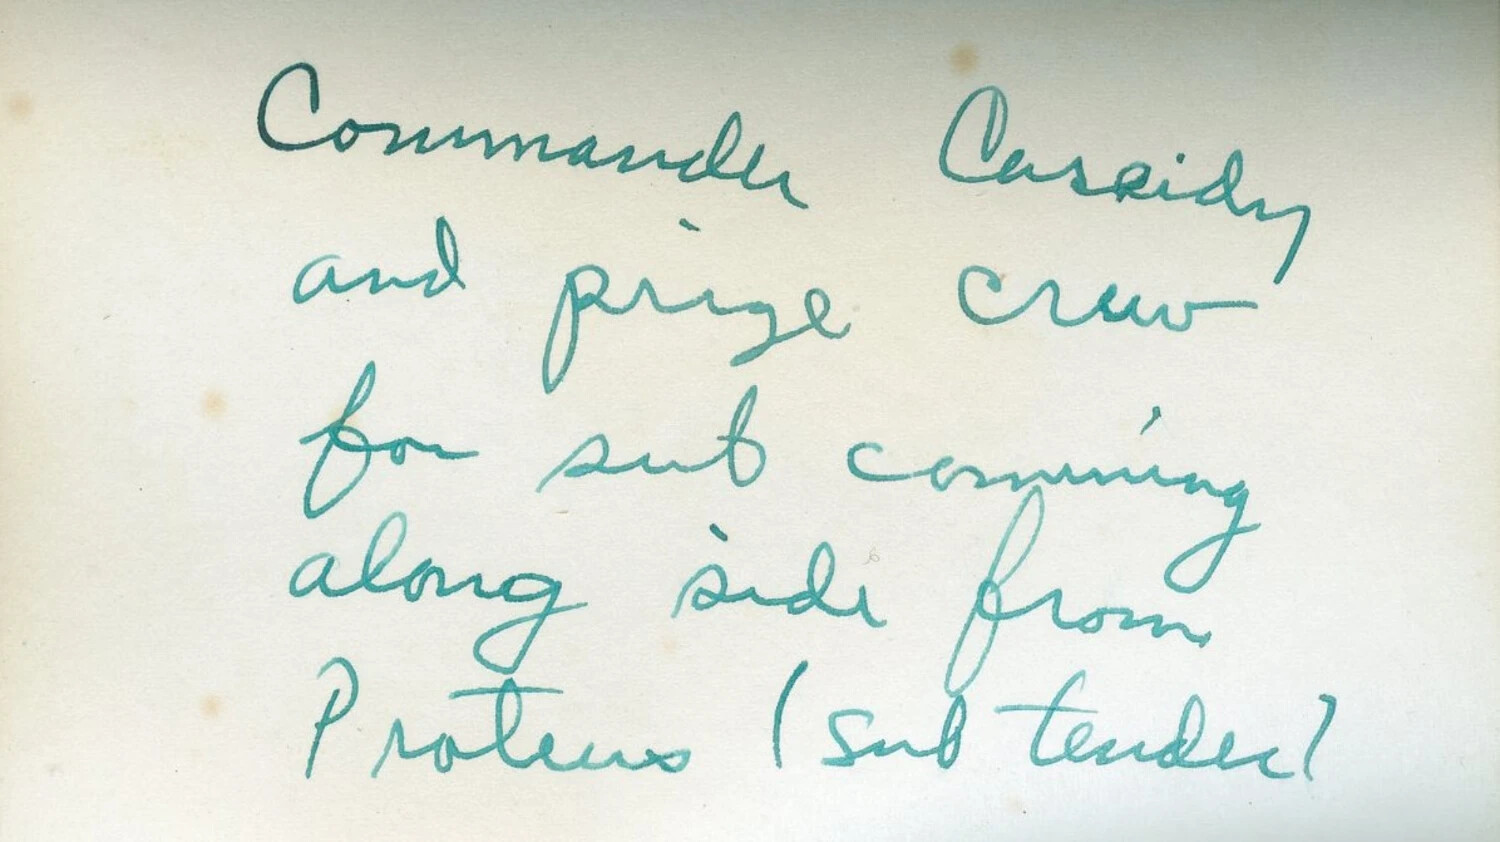 Commander Cassidy
and prize crew
for sub comming
along side from
Proteus (sub tender)